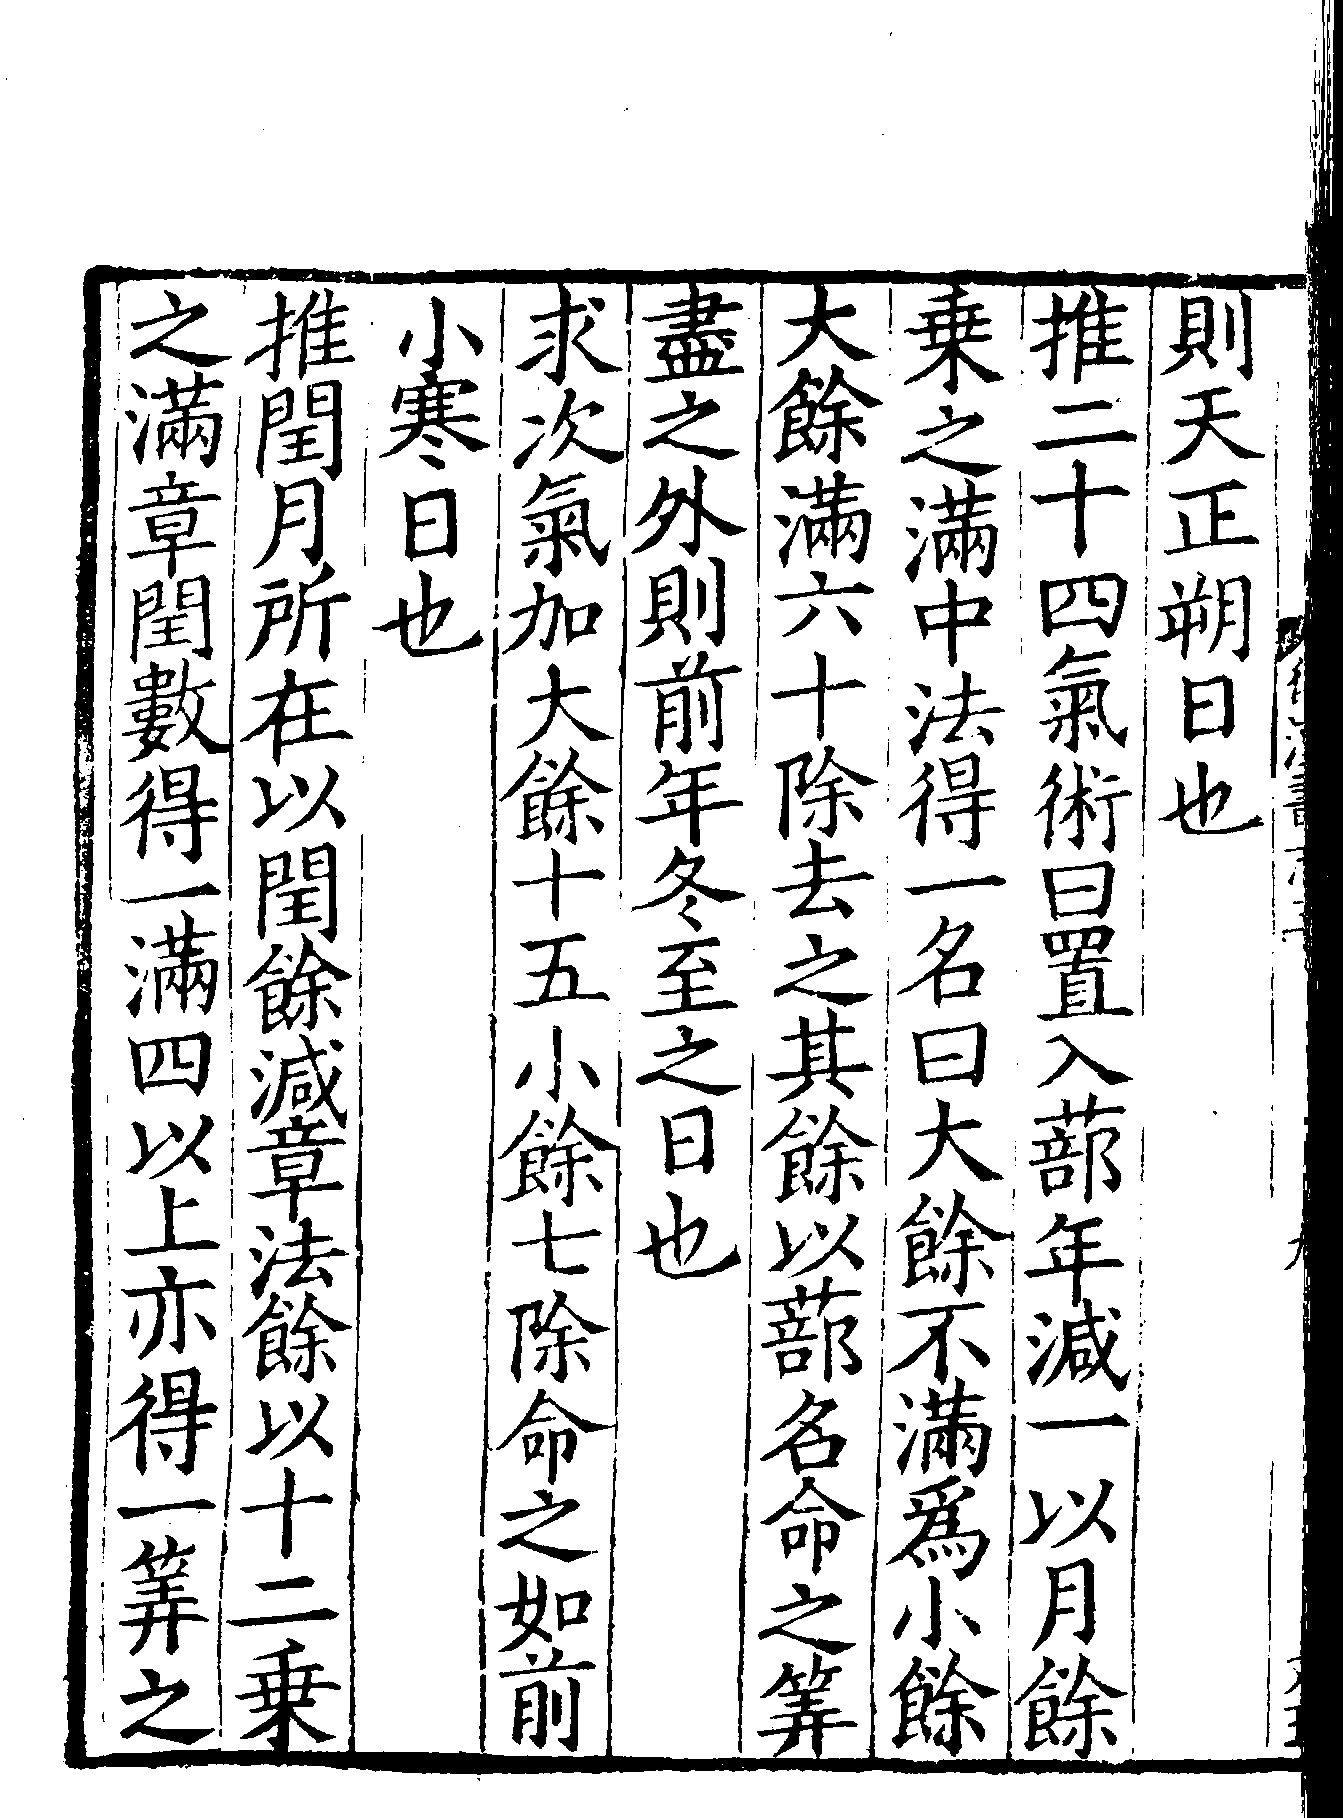 則天正朔日也
推二十四氣術曰置入蔀年減一以月餘
乗之滿中法得一名曰大餘不滿爲小餘
大餘滿六十除去之其餘以蔀名命之筭
盡之外則前年冬至之日也
求次氣加大餘十五小餘七除命之如前
小寒日也
推閏月所在以閏餘減章法餘以十二乗
之滿章閏數得一滿四以上亦得一筭之